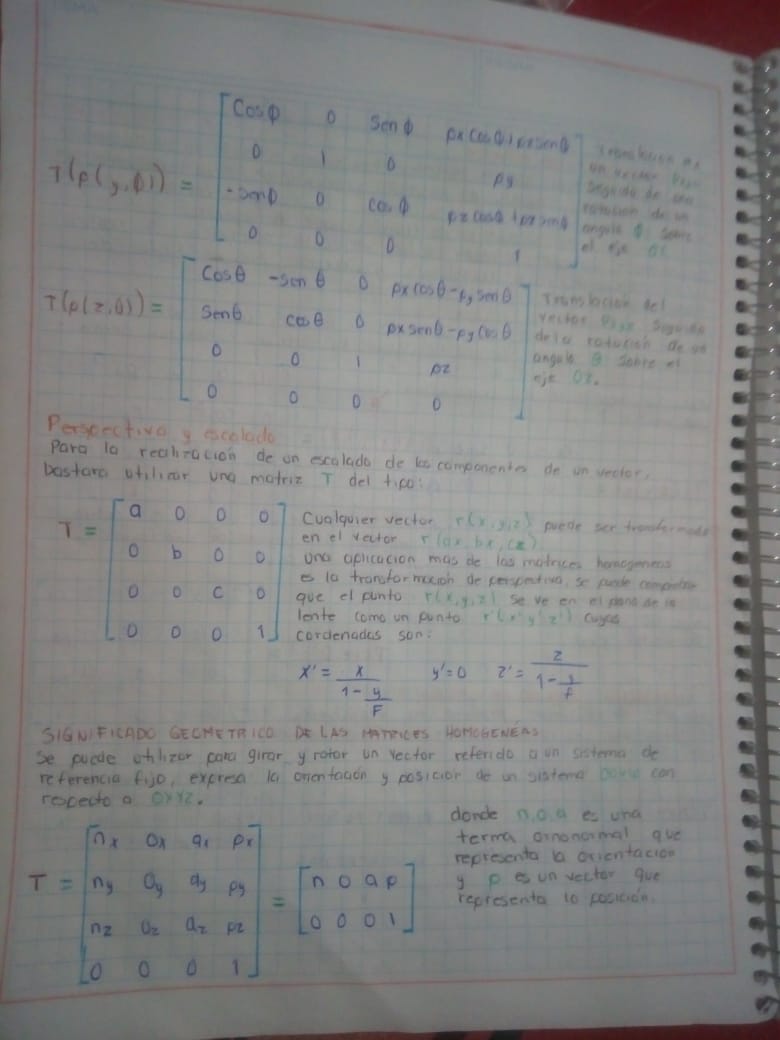 Cosϕ 0 Senϕ pxcosϕ+pxsenϕ
0 1 0 py
T(p(y,ϕ)) =
-senϕ 0 cosϕ pzcosϕ+pxsenϕ
0 0 0 1
Translacion
un vector
Seguida de una
rotacion de un
angulo ϕ sobre
el eje OY
Cosθ -senθ 0 pxcosθ-pysenθ
T(p(z,θ)) =
Senθ cosθ 0 pxsenθ-pycosθ
0 0 1 pz
0 0 0 0
Translacion del
vector Pxyz Seguido
de la rotacion de un
angulo θ sobre el
eje OZ.
Perspectiva y escalado
Para la realización de un escalado de los componentes de un vector,
bastara utilizar una matriz T del tipo:
a 0 0 0
T =
0 b 0 0
0 0 c 0
0 0 0 1
Cualquier vector r(x,y,z) puede ser transformado
en el vector r(ax, bx, cz)
una aplicacion mas de las matrices homogeneas
es la transformacion de perspectiva, se puede comprobar
que el punto r(x,y,z) se ve en el plano de la
lente como un punto r'(x'y'z') cuyas
cordenadas son:
x' = x / (1 - y/F) y'=0 z' = z / (1 - y/f)
SIGNIFICADO GEOMETRICO DE LAS MATRICES HOMOGENEAS
Se puede utilizar para girar y rotar un vector referido a un sistema de
referencia fijo, expresa la orientación y posición de un sistema con
respecto a OXYZ.
nx ox ax px
T =
ny oy ay py
nz oz az pz
0 0 0 1
=
n o a p
0 0 0 1
donde n,o,a es una
terma ornonormal que
representa la orientacion
y p es un vector que
representa lo posición.